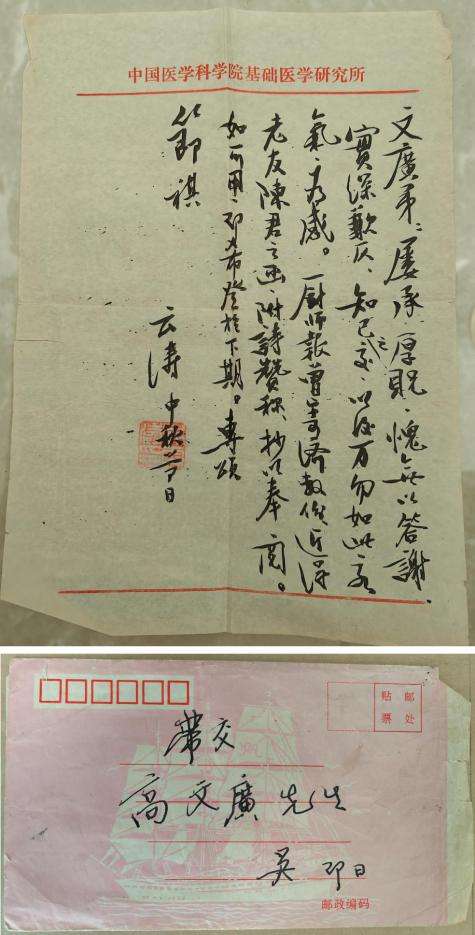 中国医学科学院基础医学研究所
文廣弟：屡承厚貺，愧無以答謝.
實深歉仄、知己之交，以後万勿如此客
氣、為感。厨師報曾寄濟數份近得
老友陳君之函，附詩贊称，抄以奉閲。
如可用，即希登於下期。專頌
節祺
云濤 中秋节日
贴 邮
票 处
带交
高文廣先生
吴 即日
邮政编码